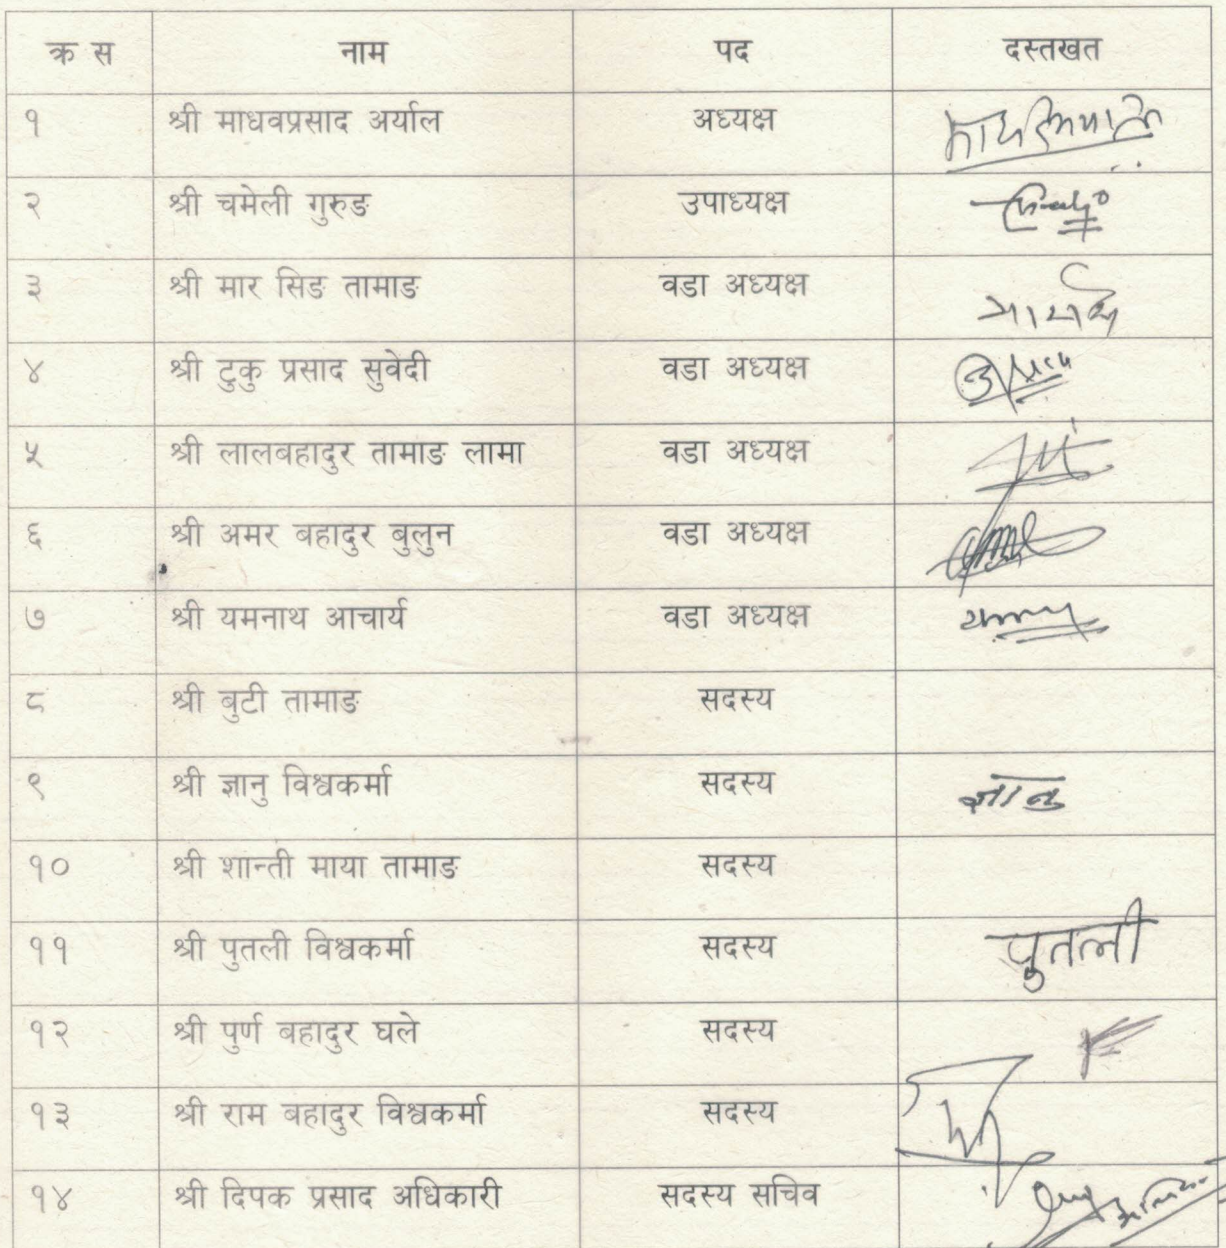 क्र स नाम पद दस्तखत
१ श्री माधवप्रसाद अर्याल अध्यक्ष
२ श्री चमेली गुरुङ उपाध्यक्ष
३ श्री मार सिङ तामाङ वडा अध्यक्ष
४ श्री टुकु प्रसाद सुवेदी वडा अध्यक्ष
५ श्री लालबहादुर तामाङ लामा वडा अध्यक्ष
६ श्री अमर बहादुर बुलुन वडा अध्यक्ष
७ श्री यमनाथ आचार्य वडा अध्यक्ष
८ श्री बुटी तामाङ सदस्य
९ श्री ज्ञानु विश्वकर्मा सदस्य ज्ञानु
१० श्री शान्ती माया तामाङ सदस्य
११ श्री पुतली विश्वकर्मा सदस्य पुतली
१२ श्री पुर्ण बहादुर घले सदस्य
१३ श्री राम बहादुर विश्वकर्मा सदस्य
१४ श्री दिपक प्रसाद अधिकारी सदस्य सचिव